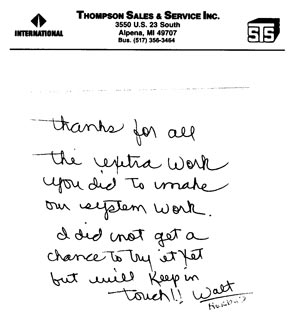 INTERNATIONAL
THOMPSON SALES & SERVICE INC.
3550 U.S. 23 South
Alpena, MI 49707
Bus. (517) 356-3464
STS
thanks for all
the extra work
you did to make
our system work.
I did not get a
chance to try it yet
but will keep in
touch!! Walt